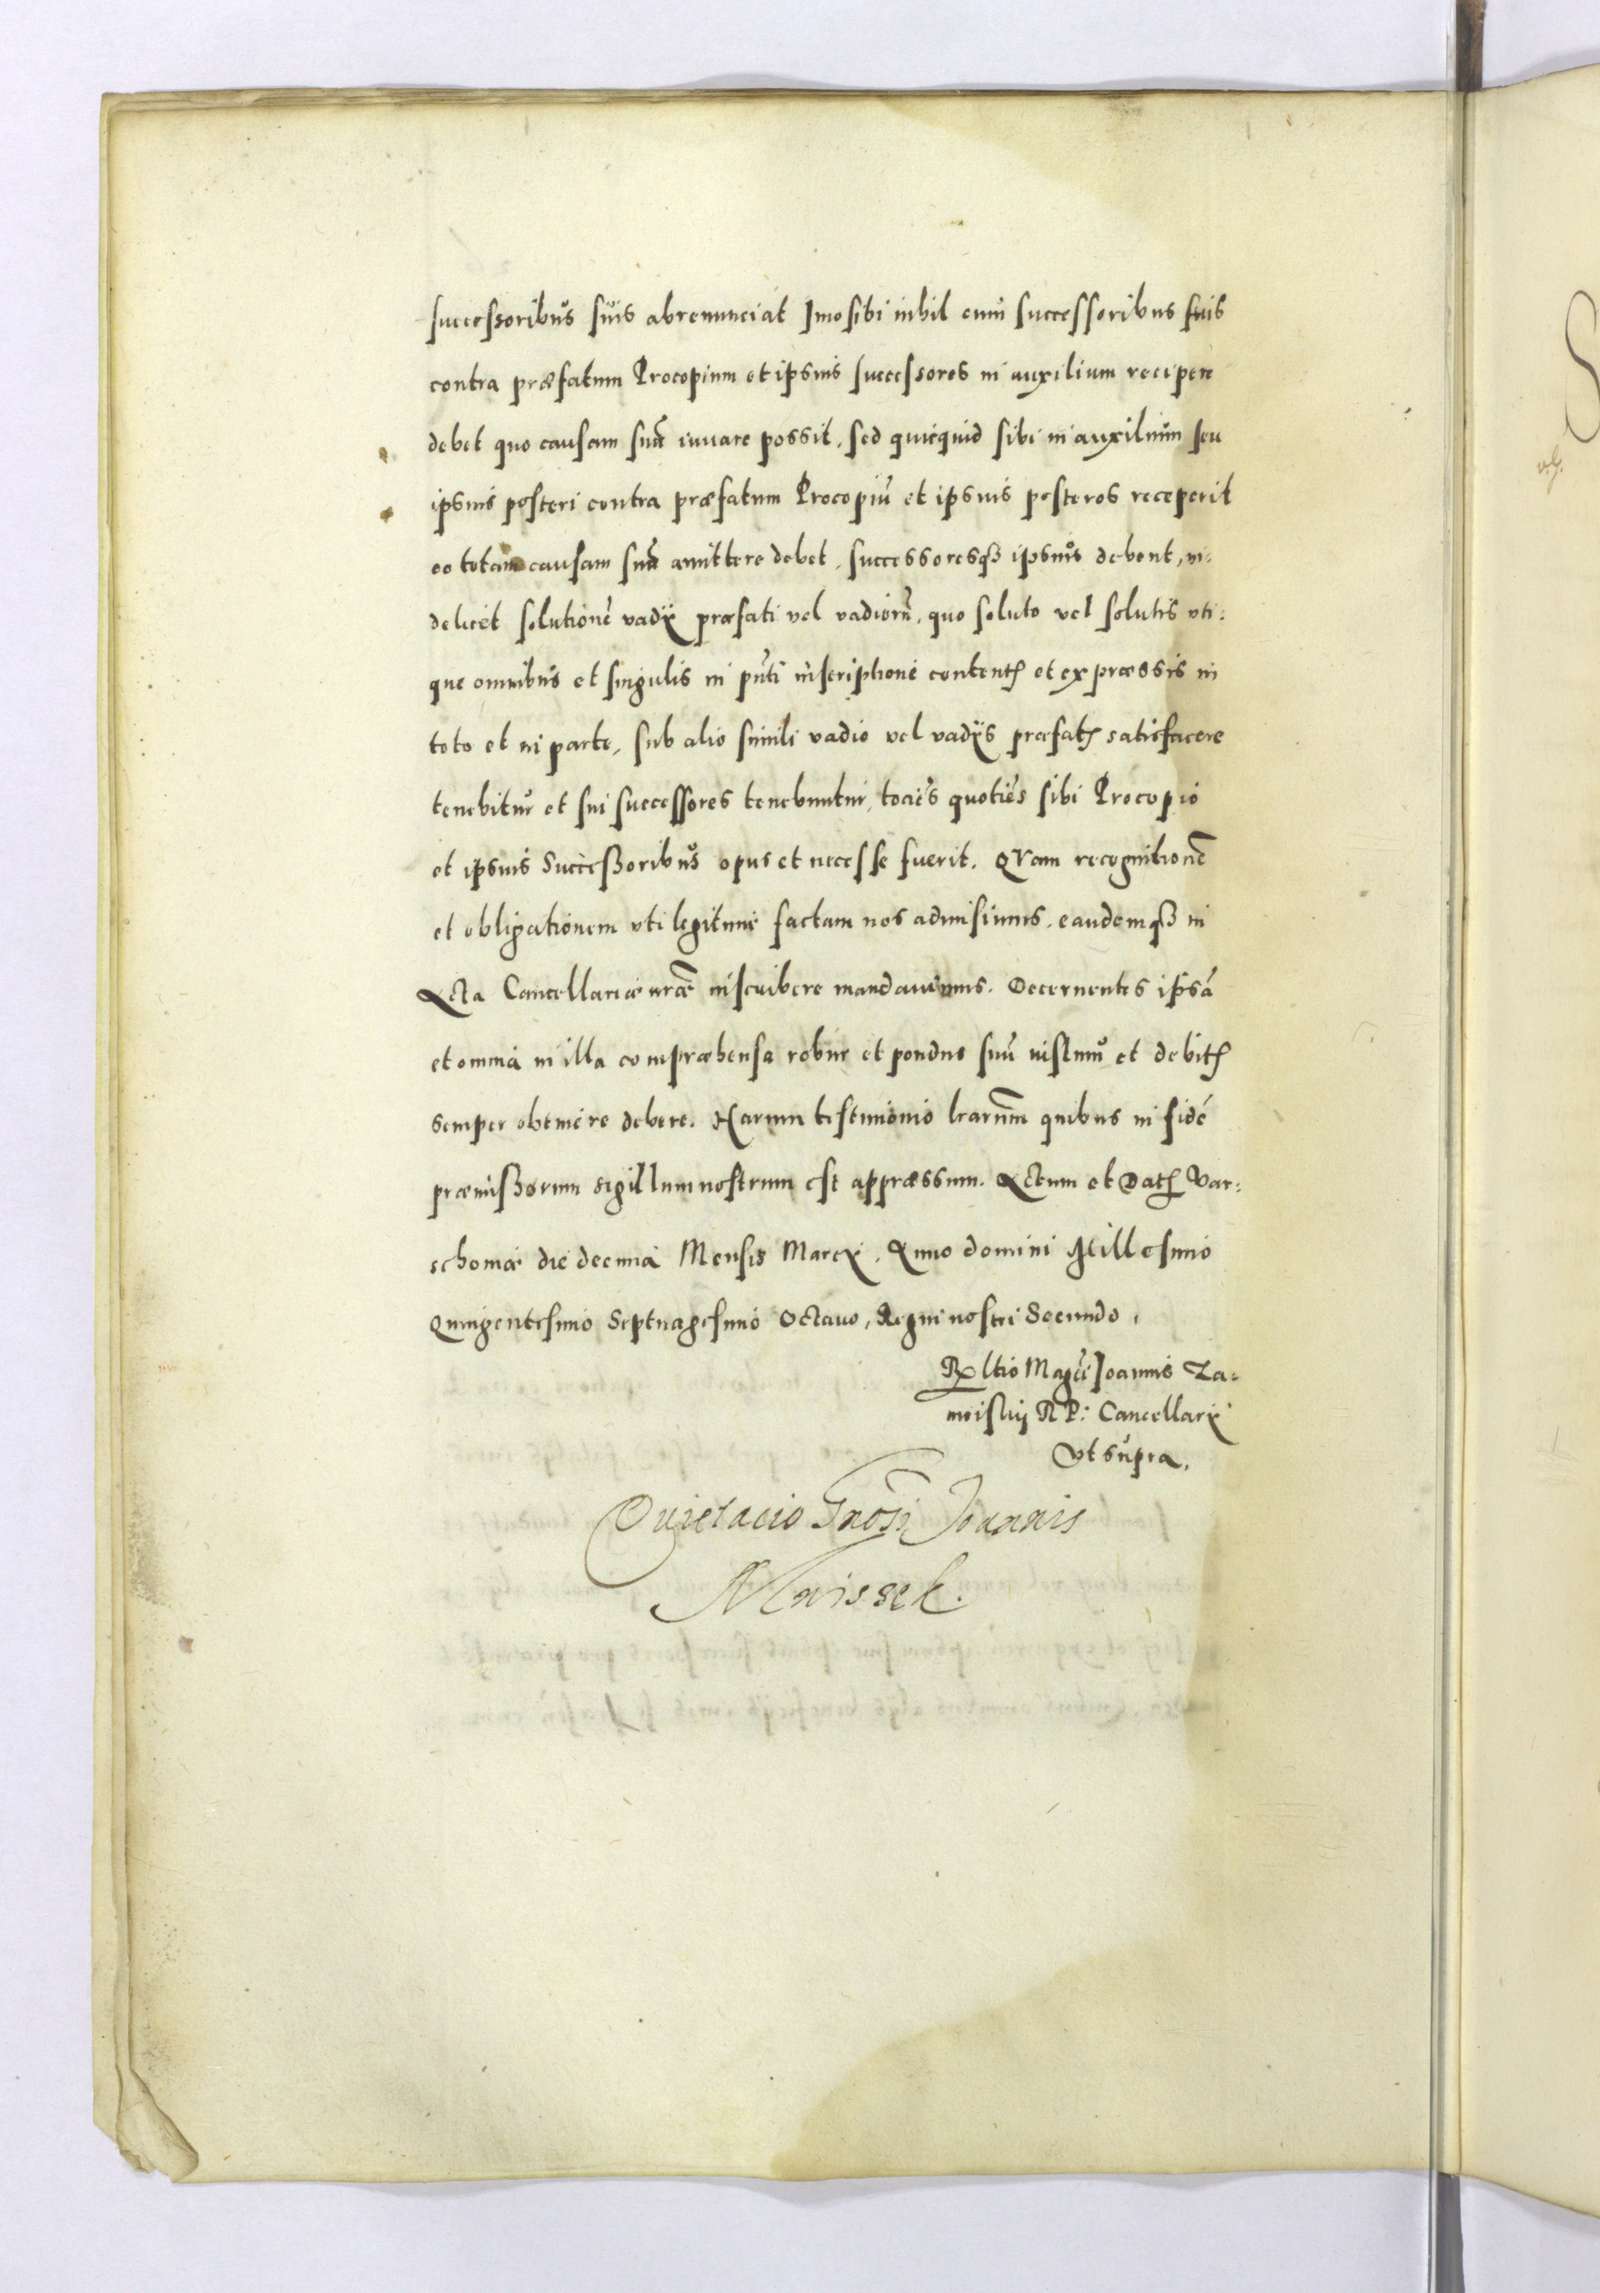 successoribus suis abrenunciat Imo sibi nihil cum successoribus suis
contra præfatum Procopium et ipsius successores in auxilium recipere
debet quo causam suã iuuare possit, sed quicquid sibi in auxilium seu
ipsius posteri contra præfatum Procopiũ et ipsius posteros receperit
eo totam causam suã amittere debet, successoresqꝫ ipsius debent, vi=
delicet solutionẽ vadÿ præfati vel vadiorũ, quo soluto vel solutis vti=
que omnibus et singulis in pñti inscriptione contentꝭ et expræssis in
toto et in parte, sub alio simili vadio vel vadÿs præfatꝭ satisfacere
tenebitur et sui successores tenebuntur, tociẽs quotiẽs sibi Procopio
et ipsius Successoribus opus et necesse fuerit. QVam recognitionẽ
et obligationem vti legitime factam nos admisimus, eandemqꝫ in
Acta Cancellariæ nrãe inscribere mandauimus. Decernentes ipsã
et omnia in illa compræhensa robur et pondus suũ iustum et debitꝭ
semper obtinere debere. Harum testimonio lrarũm quibus in fidẽ
præmissorum sigillum nostrum est appræssum. Actum et Datꝭ Var=
schouiæ die decima Mensis Marcÿ. Anno domini Millesimo
Quingentesimo Septuagesimo Octauo, Regni nostri Secundo.
Rltio Magci Joannis Za=
moiskij R P: Cancellarÿ
Vt supra.
Quietacio Gnosi Joannis